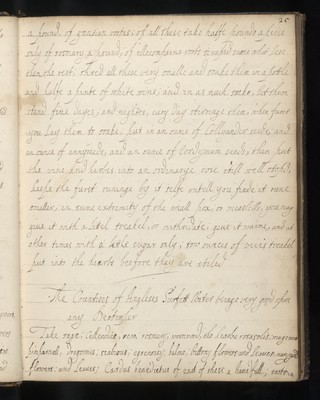 25
a pound, of gentian rootes; of all these take halfe pound, a leaves
only of rosmary a pound, of ellecompaine roots scraped some what less
then the rest; shred all these very smalle and souke them in a bottle
and halfe a pinte of white wine, and in as much sacke, let them
stand fiue dayes, and nightes, euery day stirringe them, when furst
you lay them to souke, put in an ounce of Colliander seede, and
an ounce of annyseede, and an ounce of seede, then put
the wine and hearbs into an ordenarye rose still well stopt,
keepe the furst runinge by it selfe untell you finde it run
smaller, in some extremity of the small pox, or meselles, you may
giue it with a litel treakel, or mithridate, giue it warme, and at
other times with a litle sugar only, two ounces of treakel
put into the hearbs beefore they are stiled
The Countess of Surfett Water beinge very good after
any Distemper
Take sage, Cellendine, rosmary, wormwood, rosasolis, mugwort
pimpernell, Dragones, scabious, egremony, balme, bittony flowers and leaues,
flowers and leaues; Cardus benedictus of each of these a handfull;